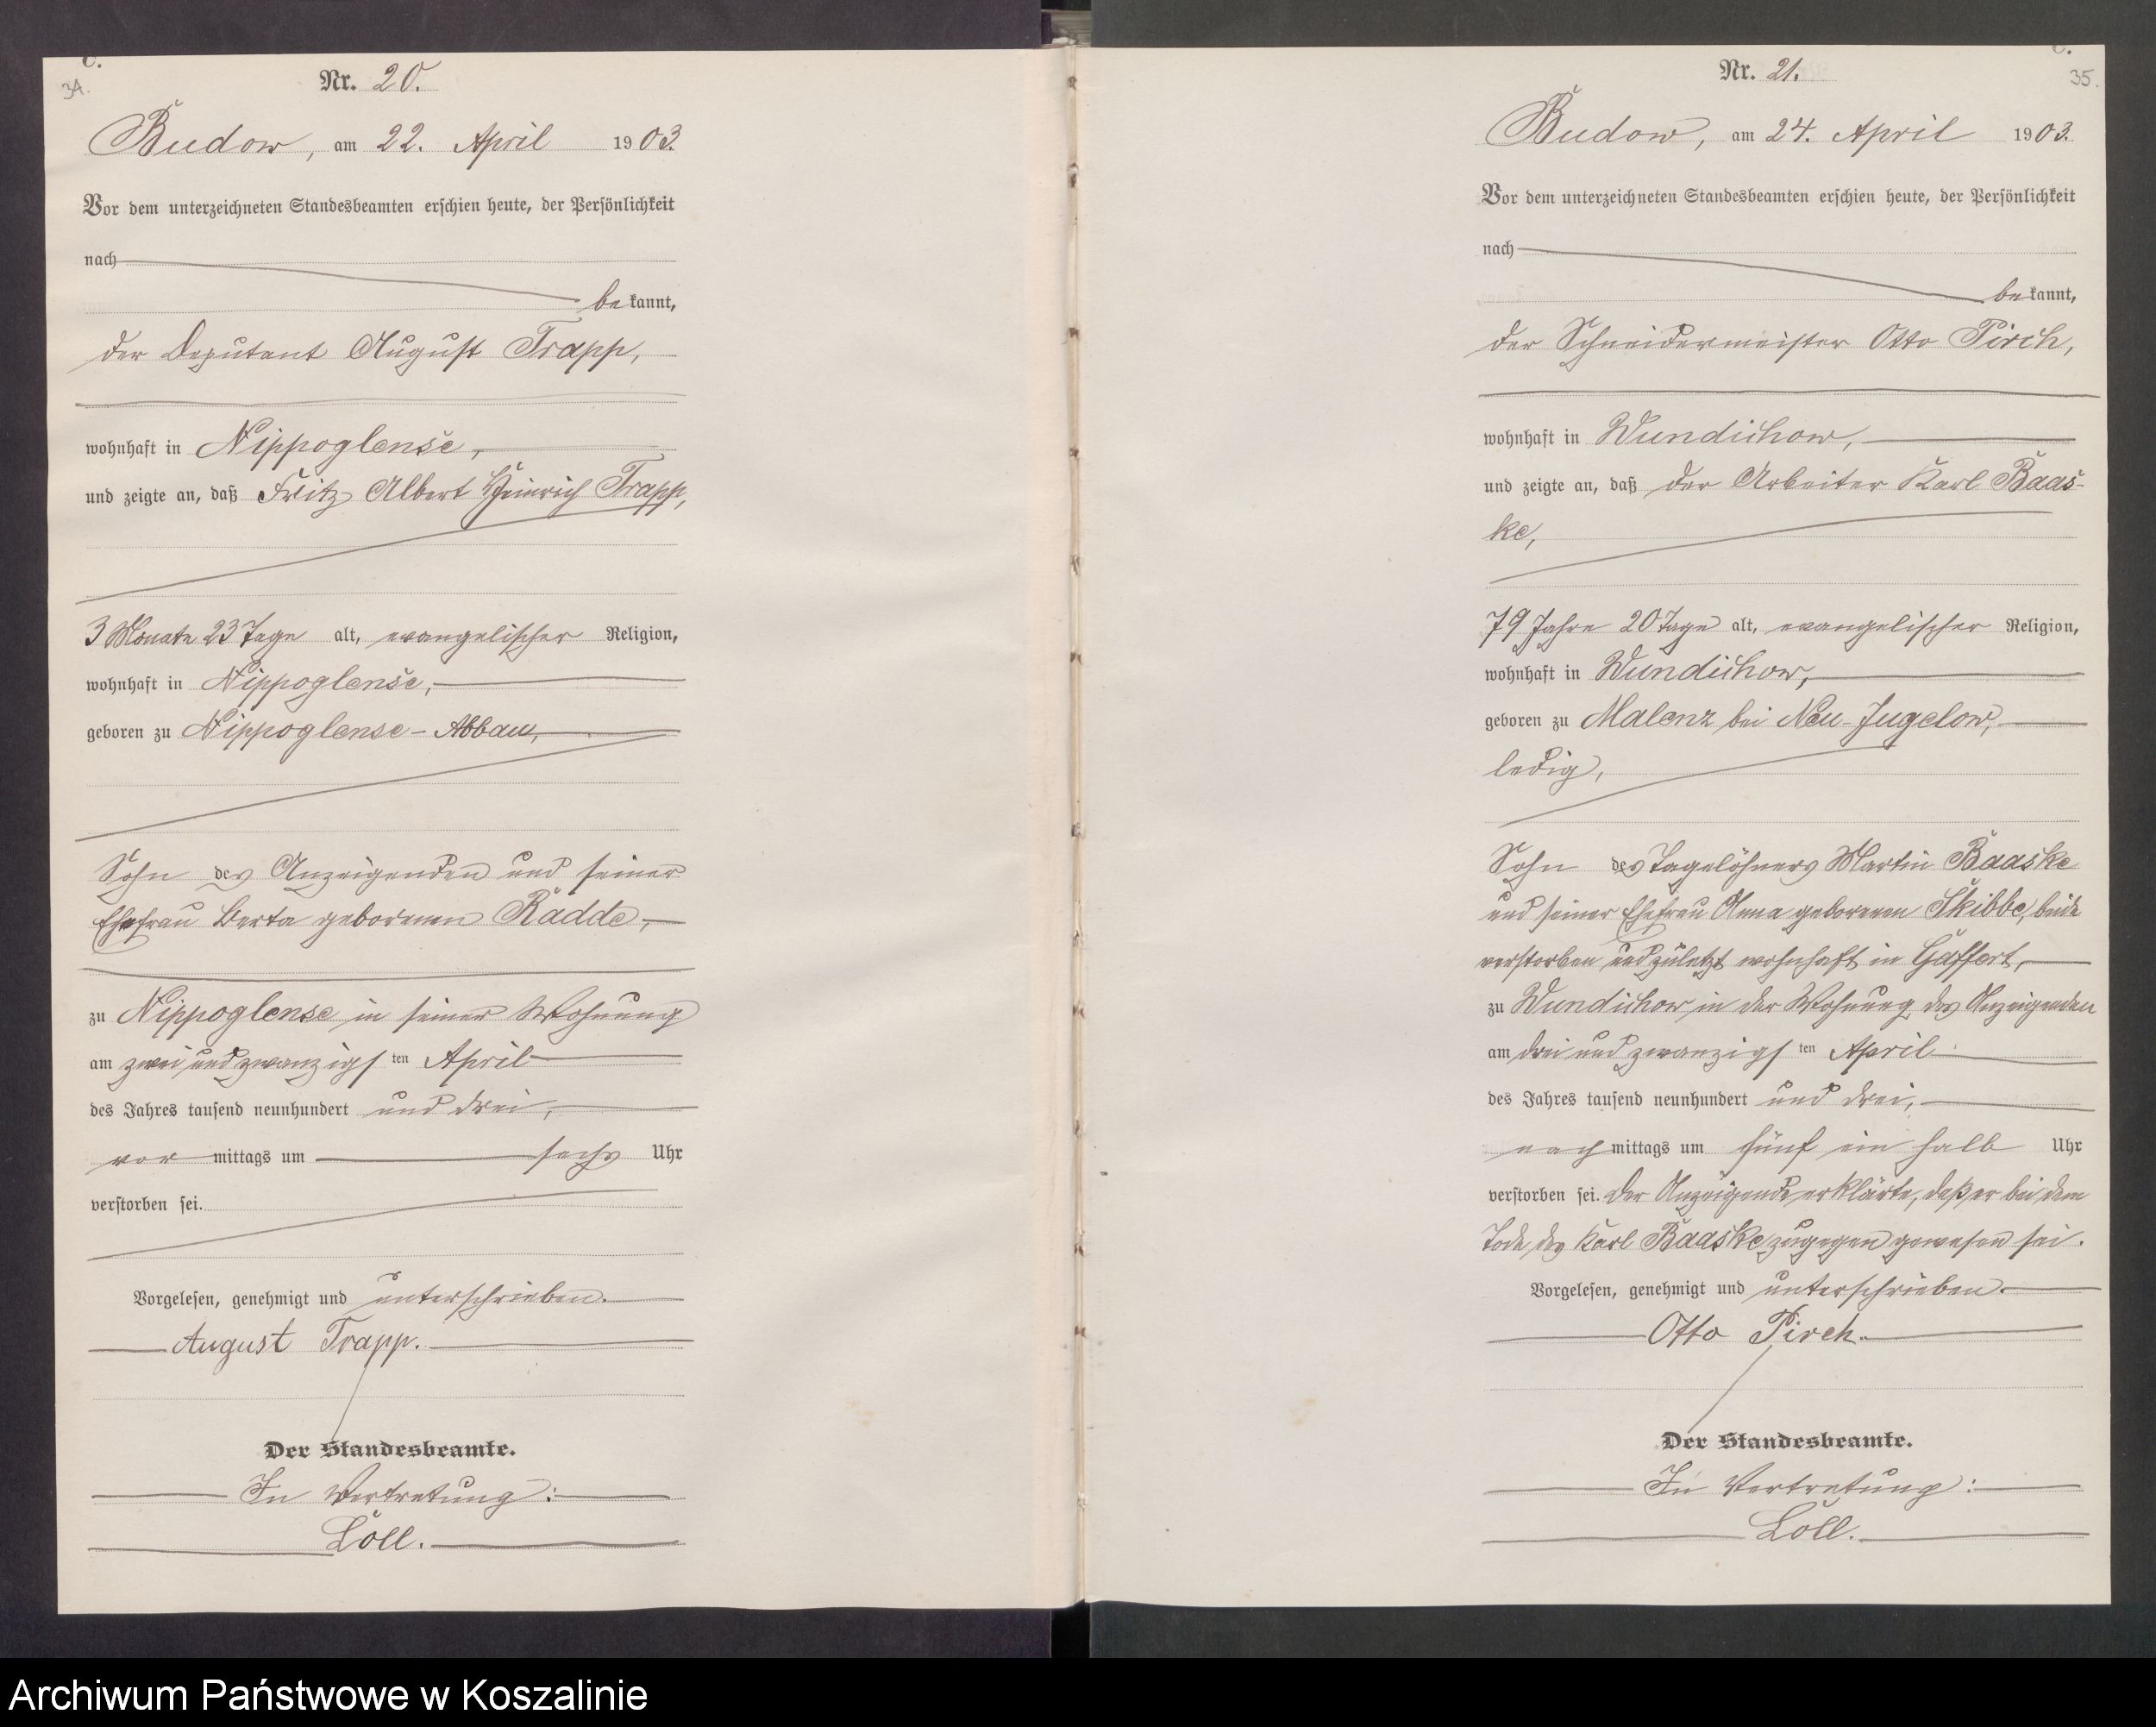 C.
34.
Nr. 20.
Budow, am 22. April 1903.
Vor dem unterzeichneten Standesbeamten erschien heute, der Persönlichkeit
nach
bekannt,
der Deputant August Trapp,
wohnhaft in Nippoglense,
und zeigte an, daß Fritz Albert Heinrich Trapp,
3 Monate 23 Tage alt, evangelischer Religion,
wohnhaft in Nippoglense,
geboren zu Nippoglense-Abbau,
Sohn des Anzeigenden und seiner
Ehefrau Berta geborenen Radde,
zu Nippoglense in seiner Wohnung
am zwei und zwanzigsten April
des Jahres tausend neunhundert und drei,
vormittags um sechs Uhr
verstorben sei.
Vorgelesen, genehmigt und unterschrieben.
August Trapp.
Der Standesbeamte.
In Vertretung:
Löll.
C.
35.
Nr. 21.
Budow, am 24. April 1903.
Vor dem unterzeichneten Standesbeamten erschien heute, der Persönlichkeit
nach
bekannt,
der Schneidermeister Otto Pirch,
wohnhaft in Wundichow,
und zeigte an, daß der Arbeiter Karl Baas-
ke,
79 Jahre 20 Tage alt, evangelischer Religion,
wohnhaft in Wundichow,
geboren zu Malenz bei Neu-Jugelow,
ledig,
Sohn des Tagelöhners Martin Baaske
und seiner Ehefrau Anna geborenen Skibbe, beide
verstorben und zuletzt wohnhaft in Gaffert,
zu Wundichow in der Wohnung des Anzeigenden
am drei und zwanzigsten April
des Jahres tausend neunhundert und drei,
nachmittags um fünf ein halb Uhr
verstorben sei. Der Anzeigende erklärte, daß er bei dem
Tode des Karl Baaske zugegen gewesen sei.
Vorgelesen, genehmigt und unterschrieben.
Otto Pirch.
Der Standesbeamte.
In Vertretung:
Löll.
Archiwum Państwowe w Koszalinie